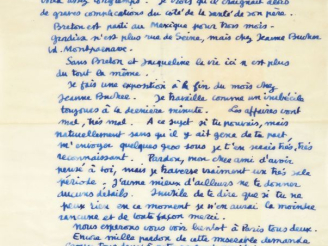 avec longtemps. Je crois qu'il craignait alors
de graves complications du côté de la santé de son père.
Breton est parti au Mexique pour trois mois.
Gradiva n'est plus rue de Seine, mais chez Jeanne Bucher
Bd. Montparnasse.
Sans Breton et Jacqueline la vie ici n'est plus
du tout la même.
Je fais une exposition à la fin du mois chez
Jeanne Bucher. Je travaille comme un imbécile
toujours à la dernière minute. Les affaires vont
mal, très mal. A ce sujet si tu pouvais, mais
naturellement sans qu'il y ait gêne de ta part,
m'envoyer quelques gros sous je t'en serais très très
reconnaissant. Pardon, mon cher ami d'avoir
pensé à toi, mais je traverse vraiment une très sale
période. J'aime mieux d'ailleurs ne te donner
aucuns détails. Inutile de te dire que si tu ne
peux rien en ce moment je n'en aurai la moindre
rancune et de toute façon merci.
Nous espérons vous voir bientôt à Paris tous deux.
Encore mille pardon de cette misérable demande